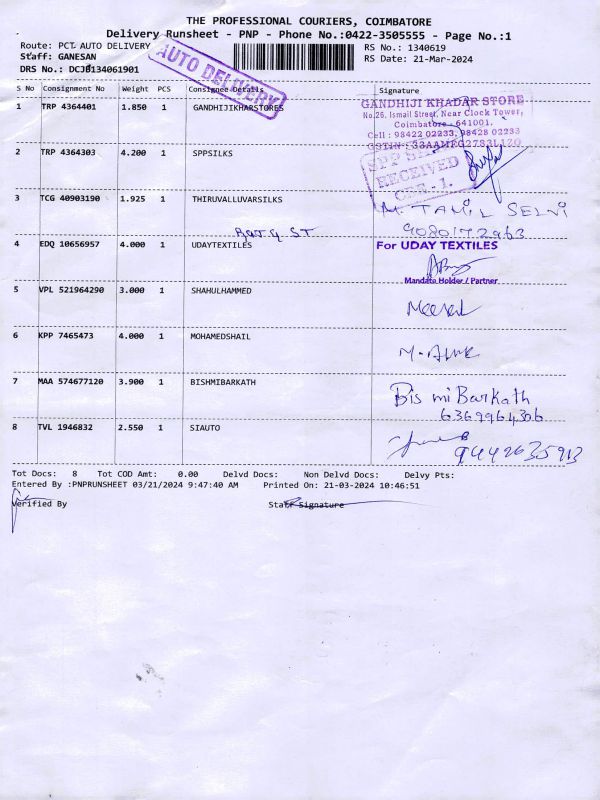 THE PROFESSIONAL COURIERS, COIMBATORE
Delivery Runsheet - PNP - Phone No.:0422-3505555 - Page No.:1
Route: PCT AUTO DELIVERY
RS No.: 1340619
Staff: GANESAN
RS Date: 21-Mar-2024
DRS No.: DCJB134061901
AUTO DELIVERY
S No Consignment No Weight PCS Consignee Details Signature
1 TRP 4364401 1.850 1 GANDHIJIKHARSTORES
GANDHIJI KHADAR STORE
No.26, Ismail Street, Near Clock Tower,
Coimbatore - 641001.
Cell : 98422 02233, 98428 02233
2 TRP 4364303 4.200 1 SPPSILKS
RECEIVED
3 TCG 40903190 1.925 1 THIRUVALLUVARSILKS
M. TAMIL SELVI
9080172963
4 EDQ 10656957 4.000 1 UDAYTEXTILES
For UDAY TEXTILES
Mandate Holder / Partner
5 VPL 521964290 3.000 1 SHAHULHAMMED
6 KPP 7465473 4.000 1 MOHAMEDSHAIL
7 MAA 574677120 3.900 1 BISHMIBARKATH
Bis mi Barkath
6369964306
8 TVL 1946832 2.550 1 SIAUTO
9442635913
Tot Docs: 8 Tot COD Amt: 0.00 Delvd Docs: Non Delvd Docs: Delvy Pts:
Entered By :PNPRUNSHEET 03/21/2024 9:47:40 AM Printed On: 21-03-2024 10:46:51
Verified By Staff Signature